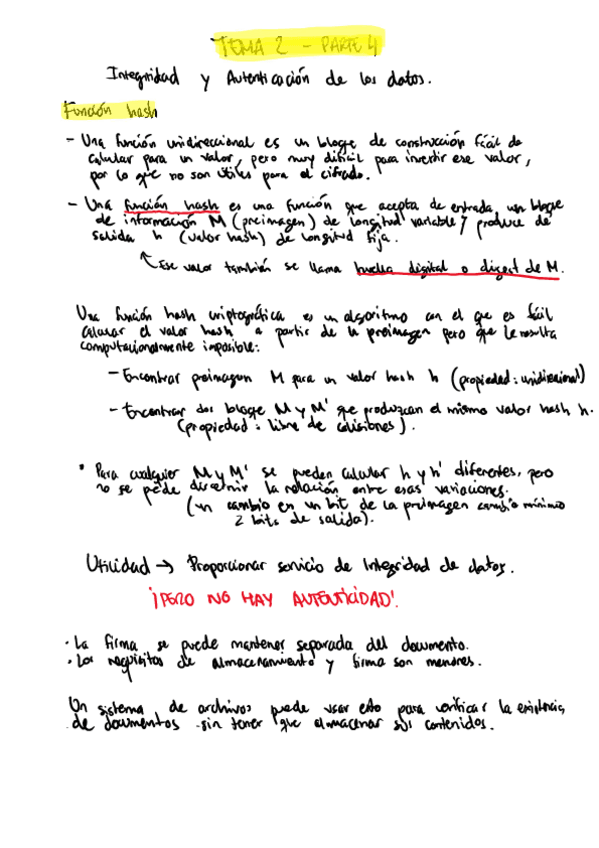 TEMA 2 - PARTE 4
Integridad y Autenticación de los datos.
Función hash
- Una función unidireccional es un bloque de construcción fácil de
calcular para un valor, pero muy difícil para invertir ese valor,
por lo que no son útiles para el cifrado.
- Una función hash es una función que acepta de entrada, un bloque
de información M (preimagen) de longitud variable y produce de
salida h (valor hash) de longitud fija.
Ese valor también se llama huella digital o digest de M.
Una función hash criptográfica es un algoritmo con el que es fácil
calcular el valor hash a partir de la preimagen pero que le resulta
computacionalmente imposible:
- Encontrar preimagen M para un valor hash h (propiedad: unidireccional)
- Encontrar dos bloque M y M' que produzcan el mismo valor hash h.
(propiedad: libre de colisiones).
• Para cualquier M y M' se pueden calcular h y h' diferentes, pero
no se puede discernir la relación entre esas variaciones.
(un cambio en un bit de la preimagen cambia mínimo
2 bits de salida).
Utilidad → Proporcionar servicio de Integridad de datos.
¡PERO NO HAY AUTENTICIDAD!
· La firma se puede mantener separada del documento.
· Los requisitos de almacenamiento y firma son menores.
Un sistema de archivos puede usar esto para verificar la existencia
de documentos sin tener que almacenar sus contenidos.